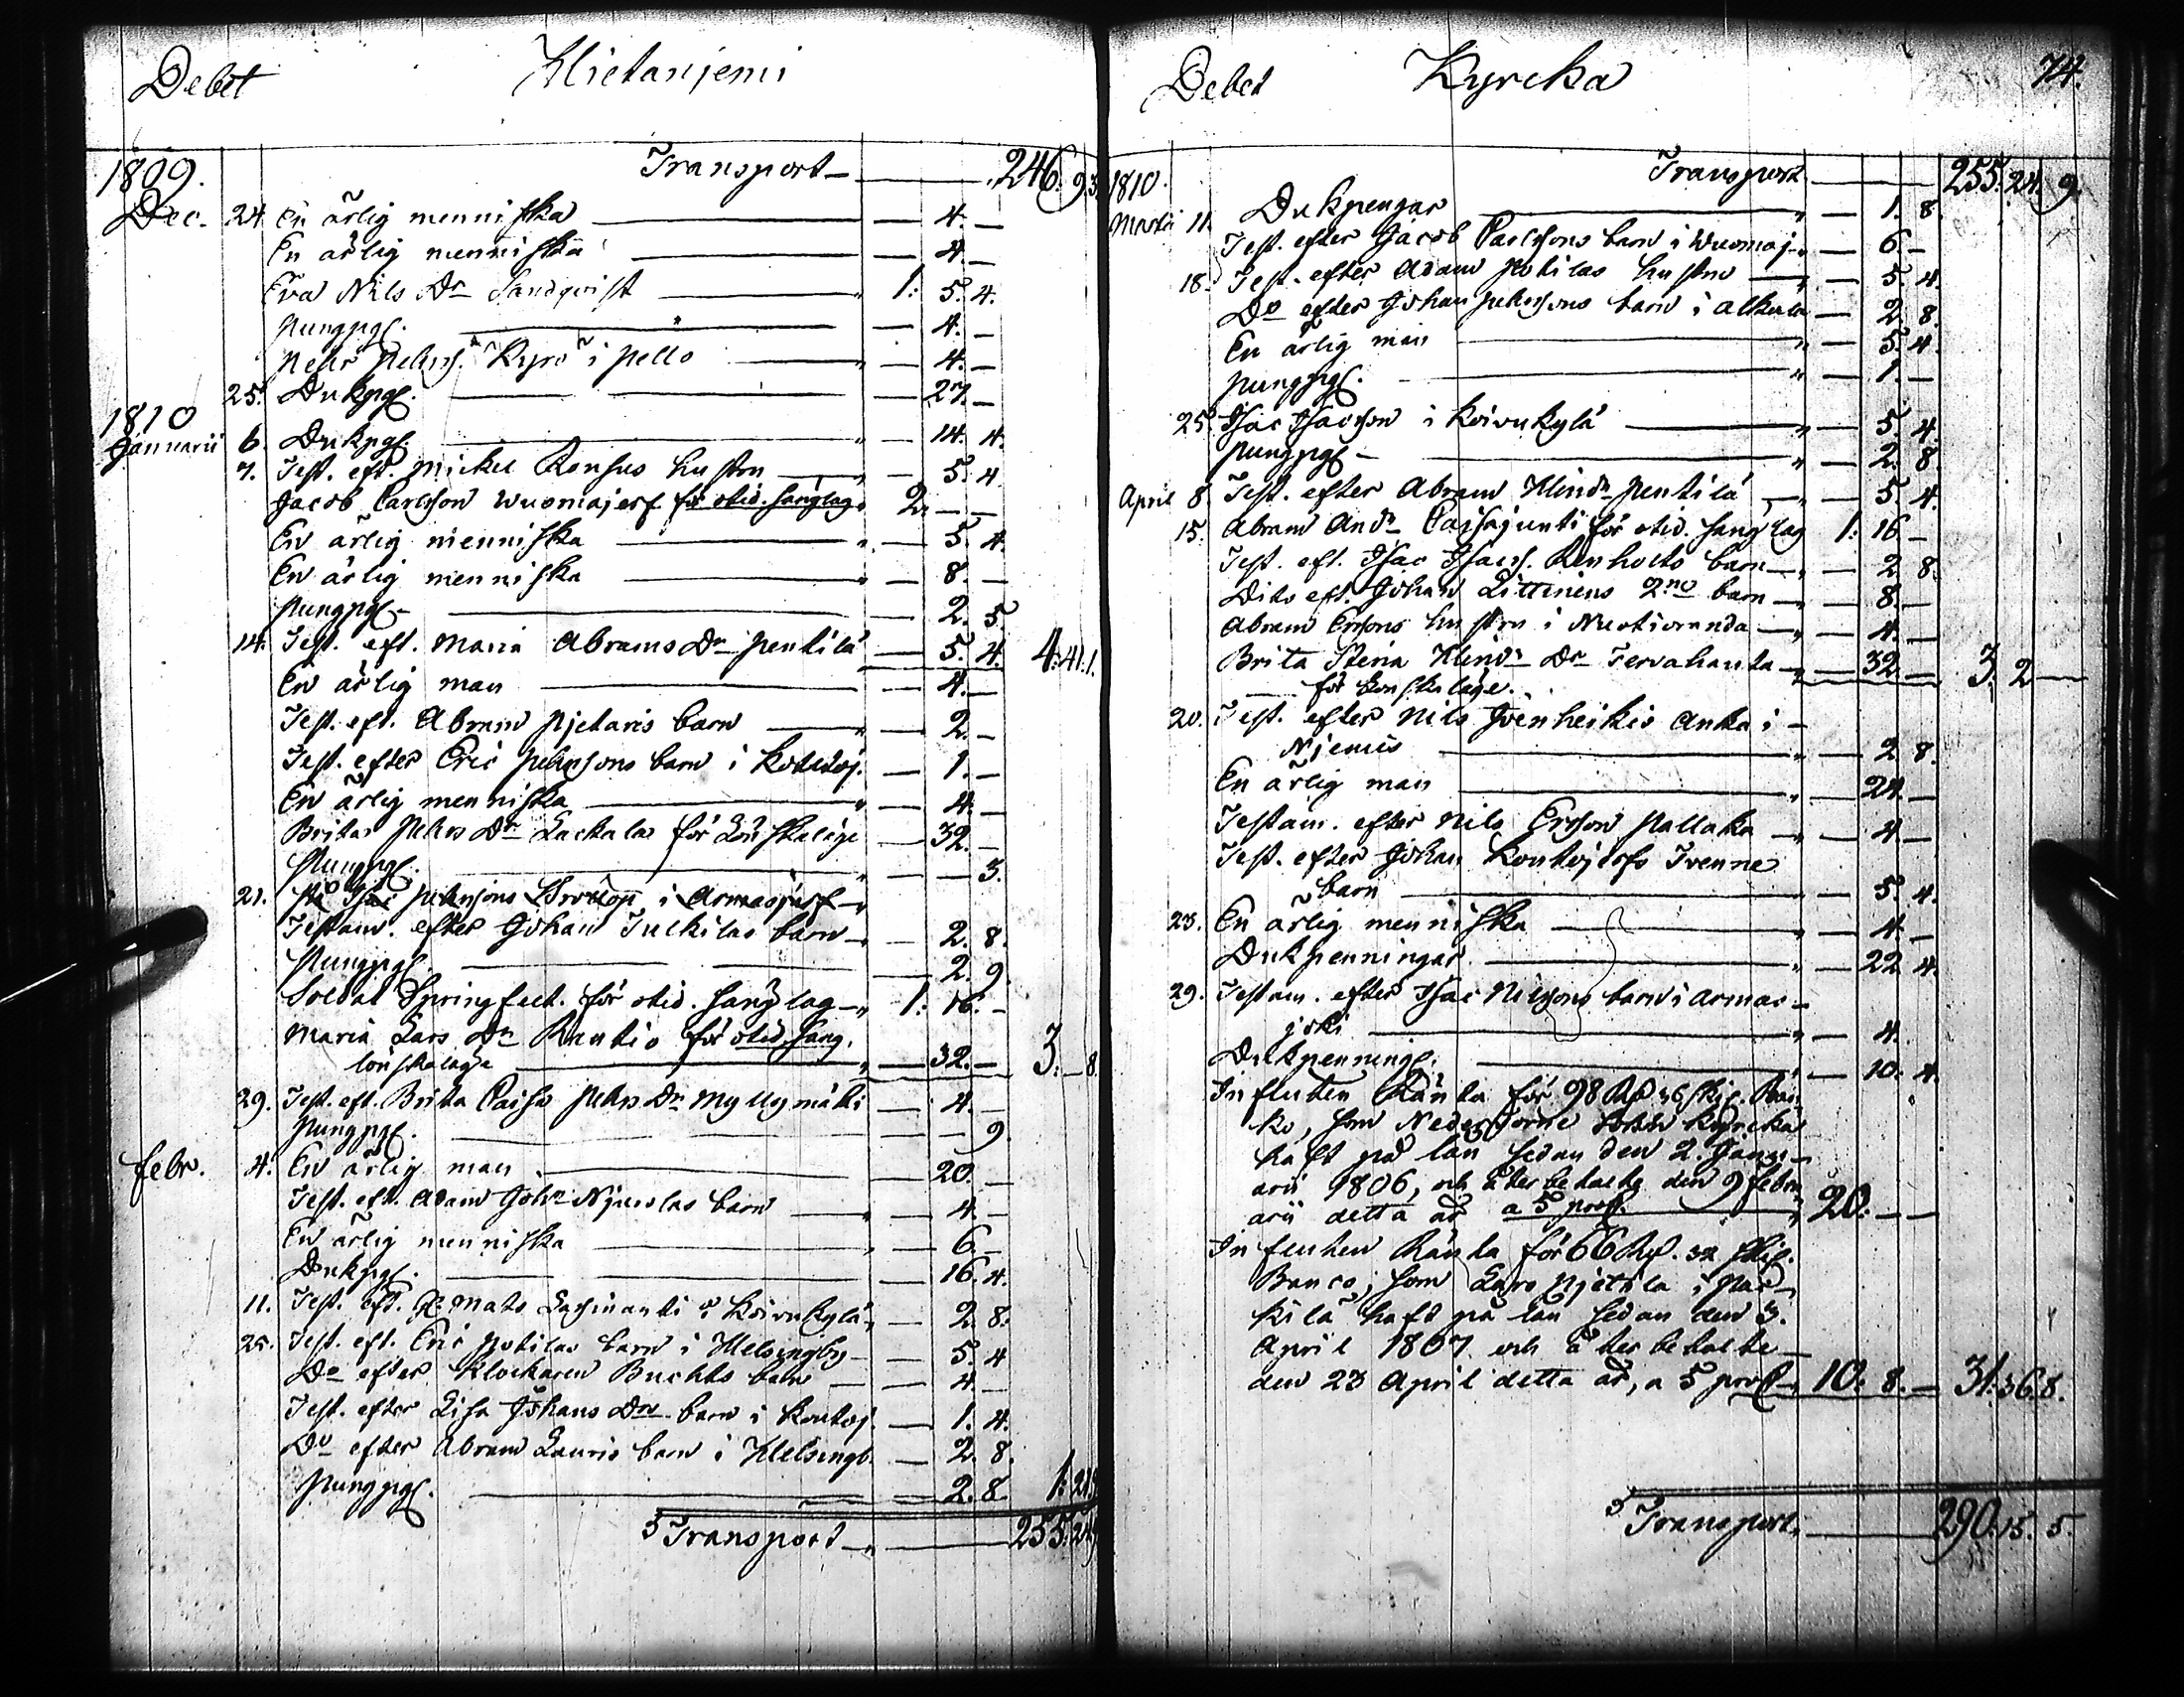 Debet Hietaniemi
1809. Transport 246. 9. 3.
Dec. 24. En ärlig menniska 4.
En ärlig menniska 4.
Eva Nils Dr Sandqvist 1: 5. 4.
pungpgr. 4.
Kyrö i pello 4.
25. Dukpgr. 27.
1810
Januarii 6. Dukpgr. 14. 4.
7. Test. eft. Mickel hustru 5. 4.
Jacob Carlsson Wuomajerf för otid. sänglag 2.
En ärlig menniska 5. 4.
En ärlig menniska 8.
pungpgr. 2. 5.
14. Test. eft. Maria Abrams Dr pentilä 5. 4. 4: 41. 1.
En ärlig man 4.
Test. eft. Abram pjetaris barn 2.
Test. efter Eric pehrsons barn i 1.
En ärlig menniska 4.
Brita pehrs Dr Lackala för Lönskaläge 32.
pungpgr. 3.
21. på Isac pehrsons i Armasjerf
Testam. efter Johan Tulkilas barn 2. 8.
pungpgr. 2. 9.
Soldat Springfelt. för otid. sänglag 1: 16.
Maria Lars Dr Rautio för otid. säng.
lönskaläge 32. 3. 8.
29. Test. eft. Brita Caisa pehrs Dr Myllymäki 4.
pungpgr. 9.
Febr. 4. En ärlig man 20.
Test. eft. Adam Johns barn 4.
En ärlig menniska 6.
Dukpgr. 16. 4.
11. Test. eft. Mats i Koivukylä 2. 8.
25. Test. eft. Eric potilas barn i Helsingby 5. 4
Do efter Klockaren Buchts barn 4.
Test. efter Lisa Johans Drs barn i 1. 4.
Do efter Abram Lauris barn i Helsingb. 2. 8.
pungpgr. 2. 8. 1: 21.
Transport 255: 24. 9
Debet Kyrcka 74.
1810. Transport 255. 24. 9.
Martii 11. Dukpengar 1. 8.
Test. efter Jacob Carlssons barn i Wuomaj. 6.
18. Test. efter Adam potilas hustru 5. 4.
Do efter Johan pehrsons barn i Alkula 2. 8.
En ärlig man 5. 4.
pungpgr. 1.
25. Isac Isacson i Koivukylä 5. 4.
pungpgr 2. 8.
April 8. Test. efter Abram Hindr pentilä 5. 4.
15. Abram Andr för otid. sänglag 1: 16
Test. eft. Isac Isacs. barn 2. 8.
Dito eft. Johan Littinens 2ne barn 8.
Abram Ersons hustru i 4.
Brita Stina Hindr Dr Tervahauta 32 3. 2
för lönskaläge.
20. Test. efter Nils Anka i
Njemis 2. 8.
En ärlig man 24.
Testam. efter Nils Ersson Pallaka 4.
Test. efter Johan Tvenne
barn 5. 4.
23. En ärlig menniska 4.
Dukpenningar 22 4.
29. Testam. efter Isac Nilssons barn i Armas-
joki 4.
Dukpenningr. 10. 4.
Influten Ränta för 98 Rd 36 skg. Ban-
ko, som Nedertorne Kyrcka
haft på lån sedan den 2. Janu-
arii 1806, och återbetalte den 9 Febru-
arii detta år a 5 proC. 20.
Influten Ränta för 66 Rd. 32 skg.
Banco, som Lars pjettila i
kilä haft på lån sedan den 3.
April 1807 och återbetalte
den 23 April detta år, a 5 proC 10: 8. 31: 36. 8.
Transport 290. 15. 5.